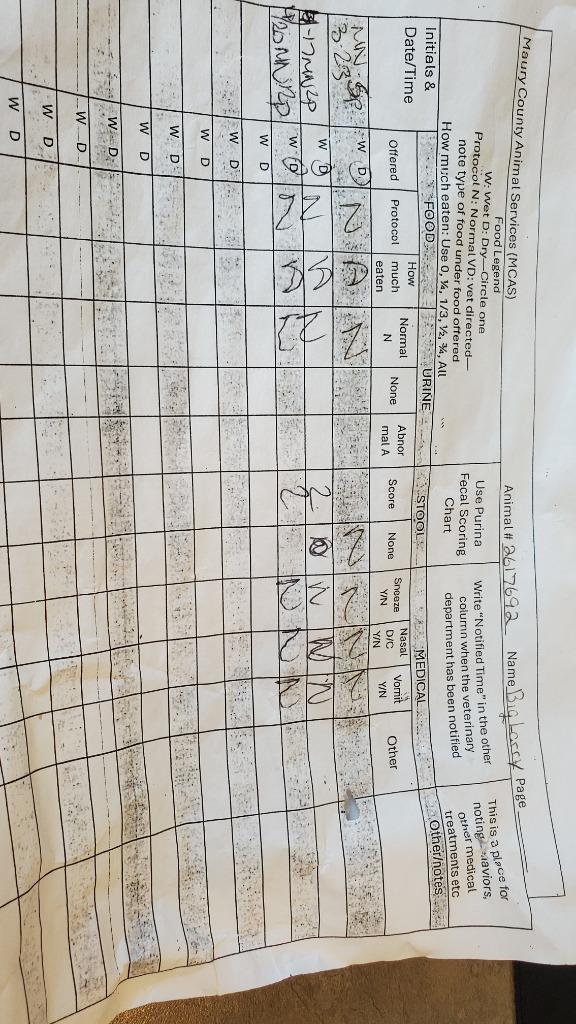 Maury County Animal Services (MCAS) Animal # 2617692 Name Big Lassy Page
Food Legend
W: Wet D: Dry—Circle one
Protocol N: Normal VD: vet directed—
note type of food under food offered
How much eaten: Use 0, ¼, 1/3, ½, ¾, All
Use Purina
Fecal Scoring
Chart
Write "Notified Time" in the other
column when the veterinary
department has been notified
This is a place for
noting behaviors,
other medical
treatments etc
Initials &
Date/Time
FOOD URINE STOOL MEDICAL Other/notes
Offered Protocol How much eaten Normal N None Abnor mal A Score None Sneeze Y/N Nasal D/C Y/N Vomit Y/N Other
W D N A N N N N N
W D N N 2 N N N
W D N 2 N N N
W D
W D
W D
W D
W D
W D
W D
W D
W D